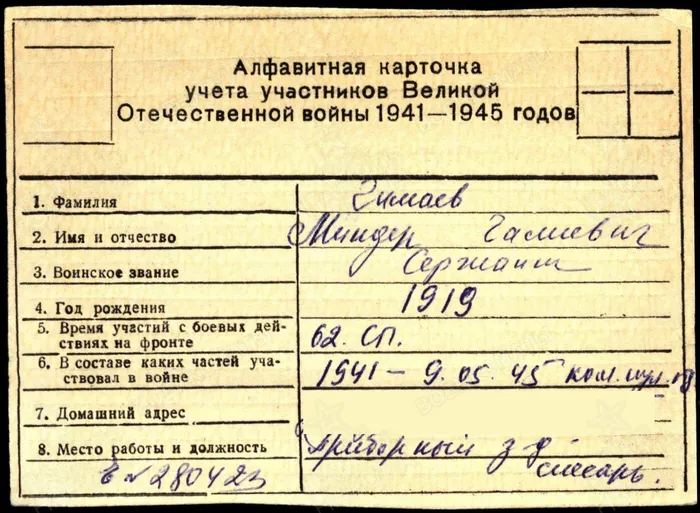 Алфавитная карточка
учета участников Великой
Отечественной войны 1941—1945 годов
1. Фамилия
2. Имя и отчество Миндер Галиевич
3. Воинское звание Сержант
4. Год рождения 1919
5. Время участий с боевых дей-
ствиях на фронте 62. СП.
6. В составе каких частей уча-
ствовал в войне 1941 – 9.05.45 ком.
7. Домашний адрес
8. Место работы и должность Приборный з-д
слесарь.
№280423